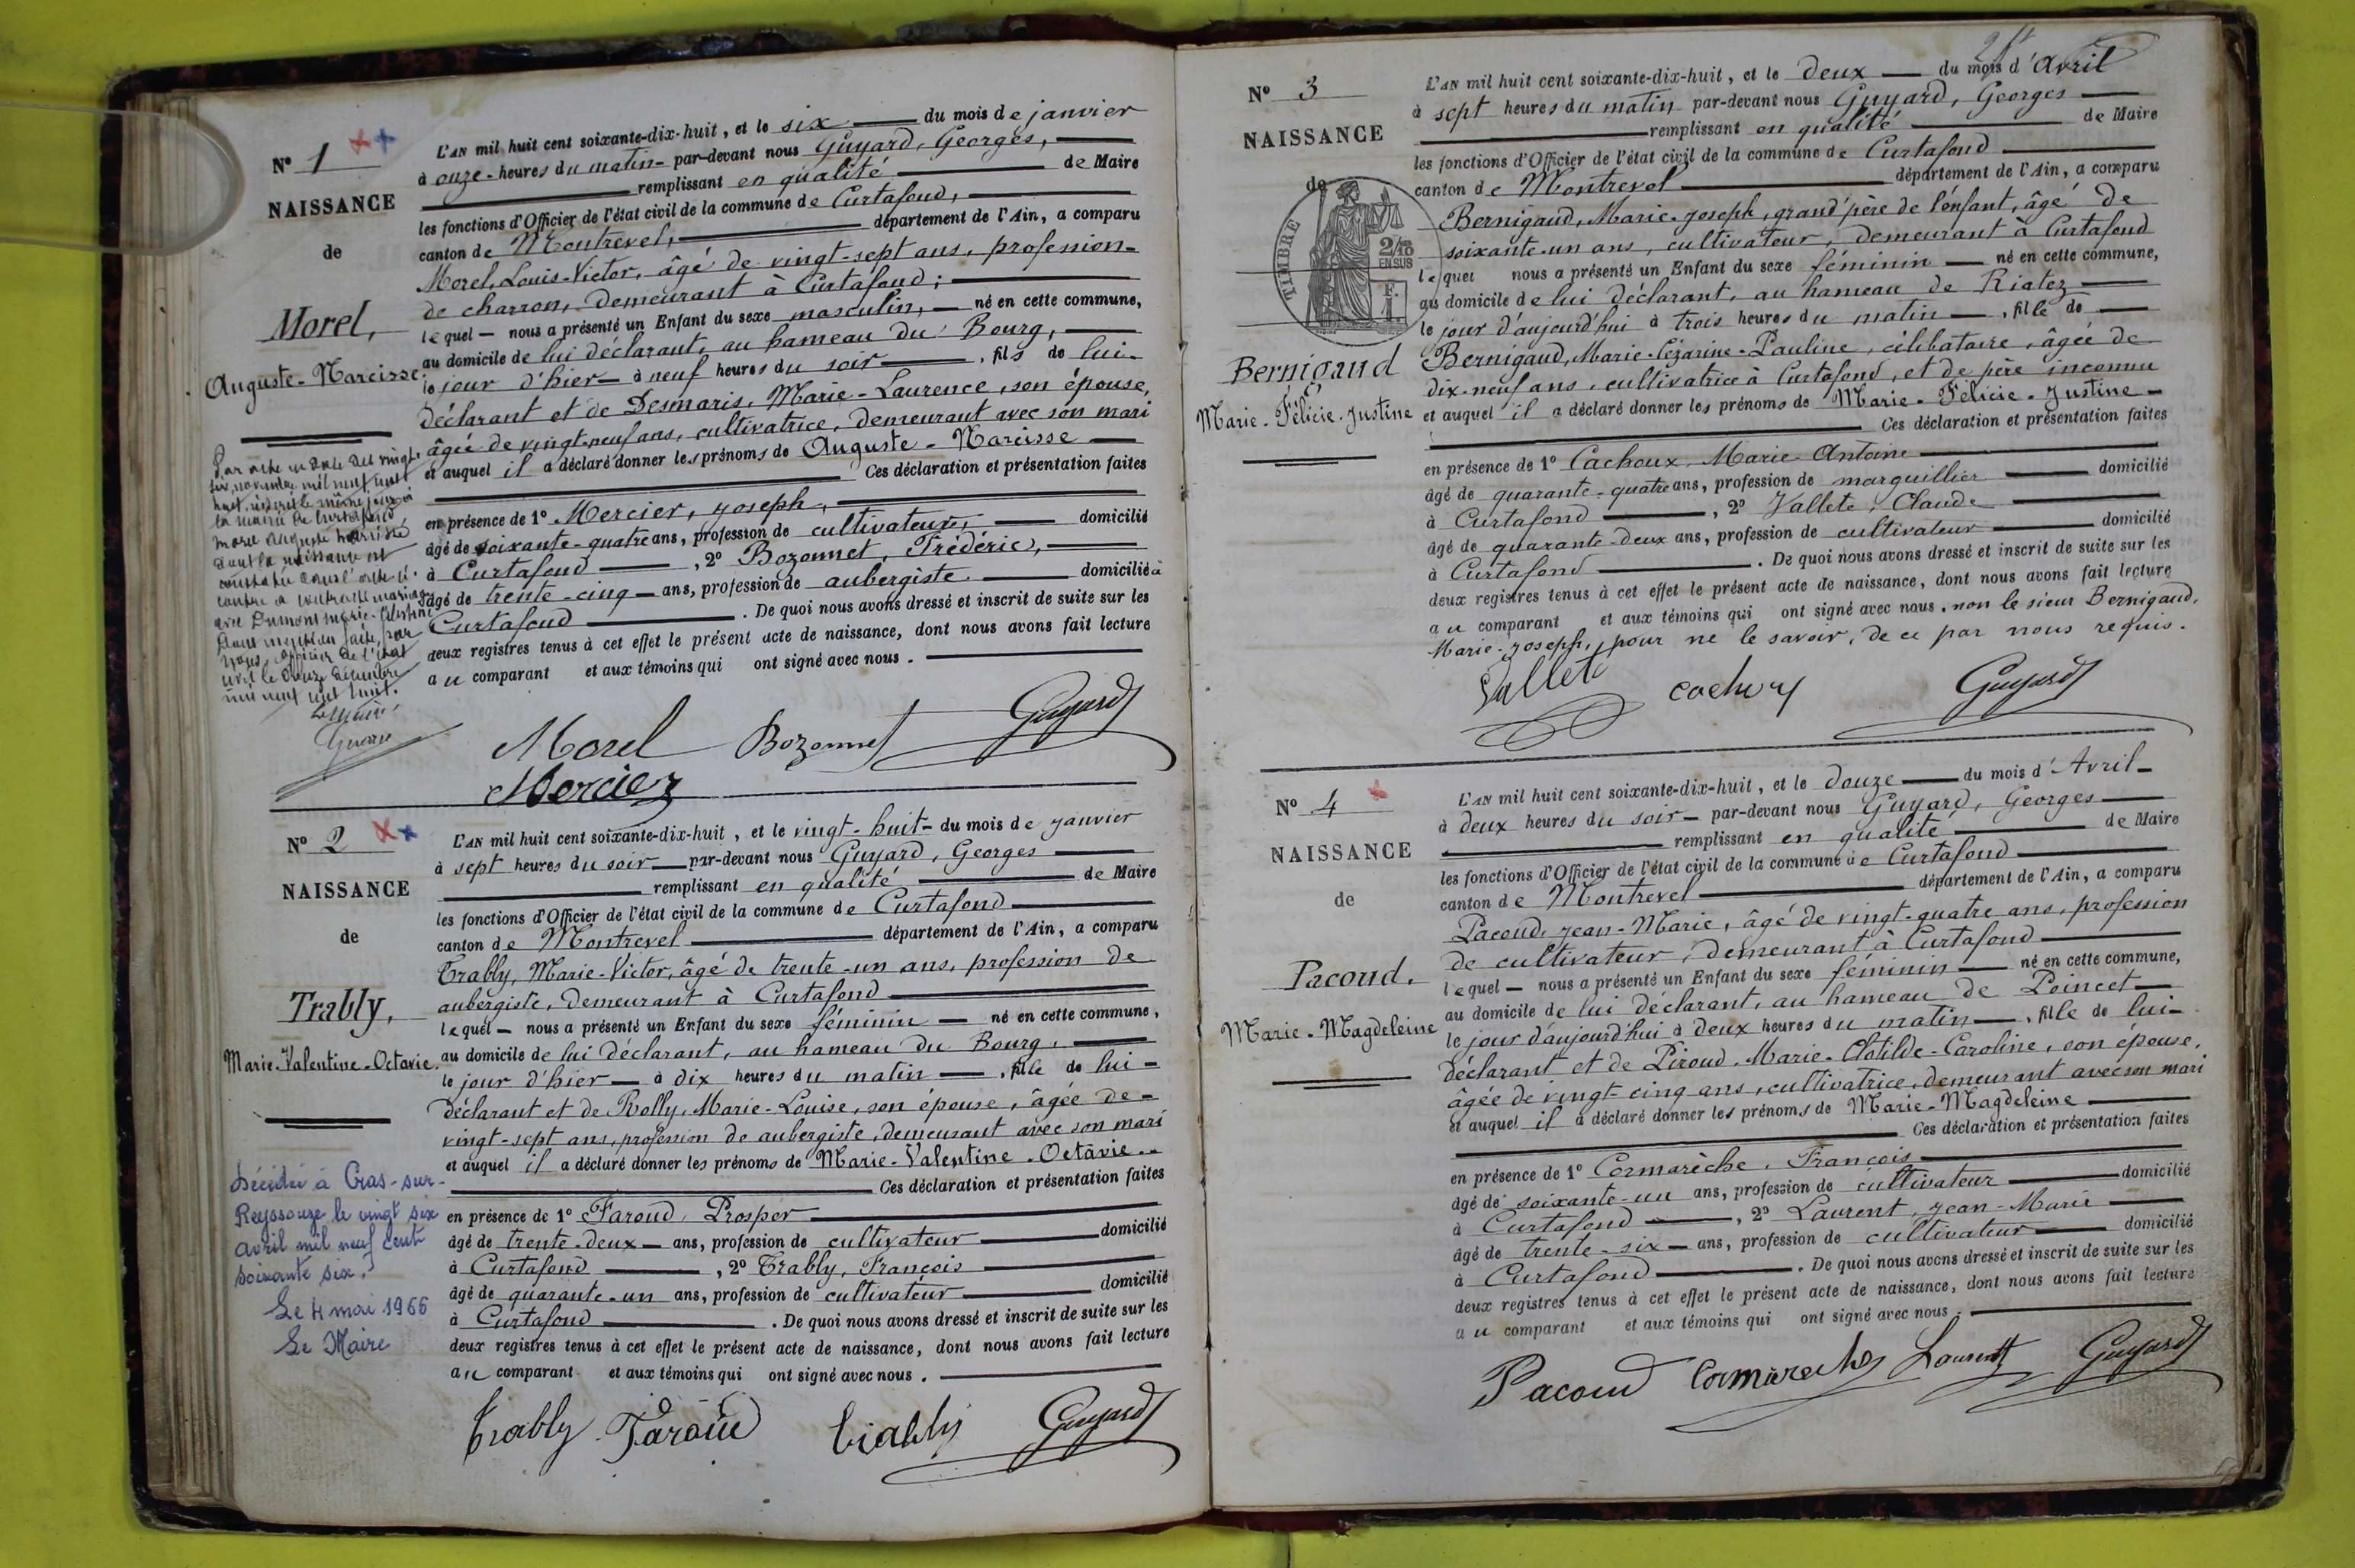 N° 1
NAISSANCE
de
Morel,
Auguste-Narcisse.
Par acte en date du vingt
six novembre mil neuf cent
huit, inscrit le même jour à
la mairie de Curtafond
Morel Auguste Narcisse
dont la naissance est
constatée dans l'acte ci-
contre a contracté mariage
avec Dumont Marie-
Dont mention faite par
nous, officier de l'état
civil le douze décembre
mil neuf cent huit.
Le Maire,
L'AN mil huit cent soixante-dix-huit, et le six du mois de janvier
à onze heures du matin par-devant nous Guyard, Georges,
remplissant en qualité de Maire
les fonctions d'Officier de l'état civil de la commune de Curtafond,
canton de Montrevel, département de l'Ain, a comparu
Morel, Louis-Victor, âgé de vingt-sept ans, profession
de charron, demeurant à Curtafond;
lequel nous a présenté un Enfant du sexe masculin, né en cette commune,
au domicile de lui déclarant, au hameau du Bourg,
le jour d'hier à neuf heures du soir, fils de lui
déclarant et de Desmaris, Marie-Laurence, son épouse,
âgée de vingt-neuf ans, cultivatrice, demeurant avec son mari
et auquel il a déclaré donner les prénoms de Auguste-Narcisse
Ces déclaration et présentation faites
en présence de 1° Mercier, Joseph,
âgé de soixante-quatre ans, profession de cultivateur, domicilié
à Curtafond, 2° Bozonnet, Frédéric,
âgé de trente-cinq ans, profession de aubergiste domicilié à
Curtafond. De quoi nous avons dressé et inscrit de suite sur les
deux registres tenus à cet effet le présent acte de naissance, dont nous avons fait lecture
au comparant et aux témoins qui ont signé avec nous.
Morel Bozonnet Guyard
Mercier
N° 2
NAISSANCE
de
Trably,
Marie-Valentine-Octavie.
Décédée à Cras-sur-
Reyssouze le vingt six
avril mil neuf cent
soixante six.
Le 4 mai 1966
Le Maire
L'AN mil huit cent soixante-dix-huit, et le vingt-huit du mois de janvier
à sept heures du soir par-devant nous Guyard, Georges
remplissant en qualité de Maire
les fonctions d'Officier de l'état civil de la commune de Curtafond
canton de Montrevel département de l'Ain, a comparu
Trably, Marie-Victor, âgé de trente-un ans, profession de
aubergiste, demeurant à Curtafond
lequel nous a présenté un Enfant du sexe féminin né en cette commune,
au domicile de lui déclarant, au hameau du Bourg,
le jour d'hier à dix heures du matin, fille de lui
déclarant et de Rolly, Marie-Louise, son épouse, âgée de
vingt-sept ans, profession de aubergiste, demeurant avec son mari
et auquel il a déclaré donner les prénoms de Marie-Valentine-Octavie
Ces déclaration et présentation faites
en présence de 1° Faroud, Prosper
âgé de trente-deux ans, profession de cultivateur domicilié
à Curtafond, 2° Trably, François
âgé de quarante-un ans, profession de cultivateur domicilié
à Curtafond. De quoi nous avons dressé et inscrit de suite sur les
deux registres tenus à cet effet le présent acte de naissance, dont nous avons fait lecture
au comparant et aux témoins qui ont signé avec nous.
Trably Faroud Trably Guyard
N° 3
NAISSANCE
de
TIMBRE
2/10
EN SUS
Bernigaud
Marie-Félicie-Justine
L'AN mil huit cent soixante-dix-huit, et le deux du mois d'Avril
à sept heures du matin par-devant nous Guyard, Georges
remplissant en qualité de Maire
les fonctions d'Officier de l'état civil de la commune de Curtafond
canton de Montrevel département de l'Ain, a comparu
Bernigaud, Marie-Joseph, grand'père de l'enfant, âgé de
soixante-un ans, cultivateur, demeurant à Curtafond
lequel nous a présenté un Enfant du sexe féminin né en cette commune,
au domicile de lui déclarant, au hameau de Riatez
le jour d'aujourd'hui à trois heures du matin, fille de
Bernigaud, Marie-Cézarine-Pauline, célibataire, âgée de
dix-neuf ans, cultivatrice à Curtafond, et de père inconnu
et auquel il a déclaré donner les prénoms de Marie-Félicie-Justine
Ces déclaration et présentation faites
en présence de 1° Cachoux, Marie-Antoine
âgé de quarante-quatre ans, profession de marguillier domicilié
à Curtafond, 2° Vallete, Claude
âgé de quarante-deux ans, profession de cultivateur domicilié
à Curtafond. De quoi nous avons dressé et inscrit de suite sur les
deux registres tenus à cet effet le présent acte de naissance, dont nous avons fait lecture
au comparant et aux témoins qui ont signé avec nous, non le sieur Bernigaud,
Marie-Joseph, pour ne le savoir, de ce par nous requis.
Vallete Guyard
N° 4
NAISSANCE
de
Pacoud.
Marie-Magdeleine
L'AN mil huit cent soixante-dix-huit, et le douze du mois d'Avril
à deux heures du soir par-devant nous Guyard, Georges
remplissant en qualité de Maire
les fonctions d'Officier de l'état civil de la commune de Curtafond
canton de Montrevel département de l'Ain, a comparu
Pacoud, Jean-Marie, âgé de vingt-quatre ans, profession
de cultivateur, demeurant à Curtafond
lequel nous a présenté un Enfant du sexe féminin né en cette commune,
au domicile de lui déclarant, au hameau de Poincet
le jour d'aujourd'hui à deux heures du matin, fille de lui
déclarant et de Piroud, Marie-Clotilde-Caroline, son épouse,
âgée de vingt-cinq ans, cultivatrice, demeurant avec son mari
et auquel il a déclaré donner les prénoms de Marie-Magdeleine
Ces déclaration et présentation faites
en présence de 1° Cormarèche, François
âgé de soixante-un ans, profession de cultivateur domicilié
à Curtafond, 2° Laurent, Jean-Marie
âgé de trente-six ans, profession de cultivateur domicilié
à Curtafond. De quoi nous avons dressé et inscrit de suite sur les
deux registres tenus à cet effet le présent acte de naissance, dont nous avons fait lecture
au comparant et aux témoins qui ont signé avec nous.
Pacoud Cormareche Laurent Guyard